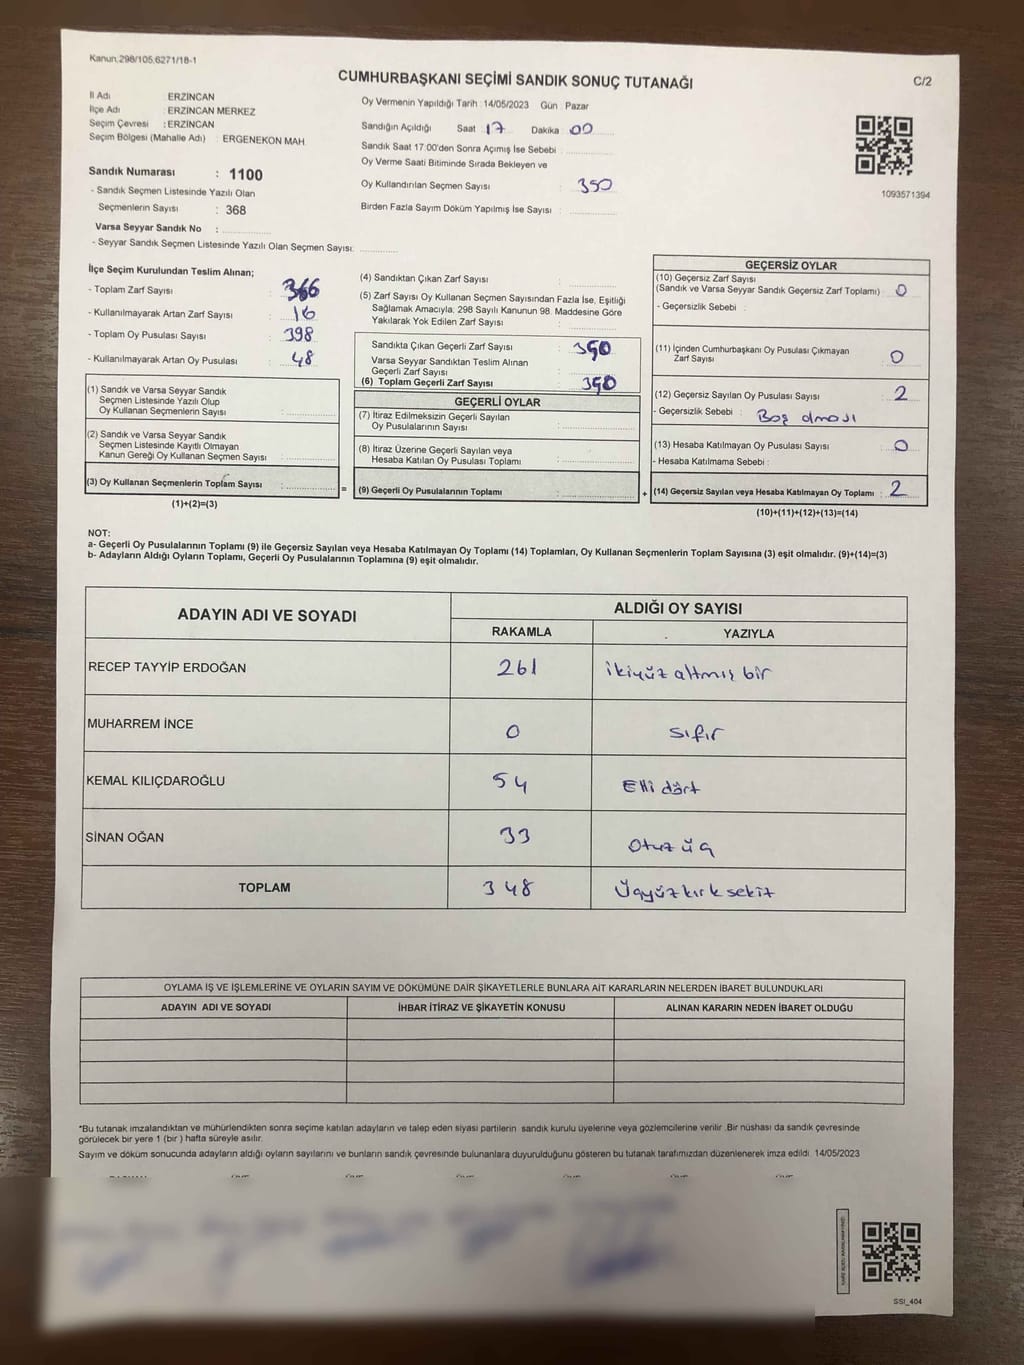 Kanun,298/105,6271/18-1
CUMHURBAŞKANI SEÇİMİ SANDIK SONUÇ TUTANAĞI
C/2
İl Adı : ERZİNCAN
İlçe Adı : ERZİNCAN MERKEZ
Seçim Çevresi : ERZİNCAN
Seçim Bölgesi (Mahalle Adı) : ERGENEKON MAH.
Sandık Numarası : 1100
- Sandık Seçmen Listesinde Yazılı Olan
Seçmenlerin Sayısı : 368
Varsa Seyyar Sandık No :
- Seyyar Sandık Seçmen Listesinde Yazılı Olan Seçmen Sayısı:
Oy Vermenin Yapıldığı Tarih :14/05/2023 Gün : Pazar
Sandığın Açıldığı Saat : 17 Dakika : 00
Sandık Saat 17:00'den Sonra Açımış İse Sebebi :
Oy Verme Saati Bitiminde Sırada Bekleyen ve
Oy Kullandırılan Seçmen Sayısı : 350
Birden Fazla Sayım Döküm Yapılmış İse Sayısı :
1093571394
İlçe Seçim Kurulundan Teslim Alınan;
- Toplam Zarf Sayısı : 366
- Kullanılmayarak Artan Zarf Sayısı : 16
- Toplam Oy Pusulası Sayısı : 398
- Kullanılmayarak Artan Oy Pusulası : 48
(1) Sandık ve Varsa Seyyar Sandık
Seçmen Listesinde Yazılı Olup
Oy Kullanan Seçmenlerin Sayısı :
(2) Sandık ve Varsa Seyyar Sandık
Seçmen Listesinde Kayıtlı Olmayan
Kanun Gereği Oy Kullanan Seçmen Sayısı :
(3) Oy Kullanan Seçmenlerin Toplam Sayısı :
(1)+(2)=(3)
(4) Sandıktan Çıkan Zarf Sayısı :
(5) Zarf Sayısı Oy Kullanan Seçmen Sayısından Fazla İse, Eşitliği
Sağlamak Amacıyla, 298 Sayılı Kanunun 98. Maddesine Göre
Yakılarak Yok Edilen Zarf Sayısı :
Sandıkta Çıkan Geçerli Zarf Sayısı : 350
Varsa Seyyar Sandıktan Teslim Alınan
Geçerli Zarf Sayısı :
(6) Toplam Geçerli Zarf Sayısı : 350
GEÇERLİ OYLAR
(7) İtiraz Edilmeksizin Geçerli Sayılan
Oy Pusulalarının Sayısı :
(8) İtiraz Üzerine Geçerli Sayılan veya
Hesaba Katılan Oy Pusulası Toplamı :
= (9) Geçerli Oy Pusulalarının Toplamı :
GEÇERSİZ OYLAR
(10) Geçersiz Zarf Sayısı
(Sandık ve Varsa Seyyar Sandık Geçersiz Zarf Toplamı) : 0
- Geçersizlik Sebebi :
(11) İçinden Cumhurbaşkanı Oy Pusulası Çıkmayan
Zarf Sayısı : 0
(12) Geçersiz Sayılan Oy Pusulası Sayısı : 2
- Geçersizlik Sebebi : Boş olması
(13) Hesaba Katılmayan Oy Pusulası Sayısı : 0
- Hesaba Katılmama Sebebi :
+ (14) Geçersiz Sayılan veya Hesaba Katılmayan Oy Toplamı : 2
(10)+(11)+(12)+(13)=(14)
NOT:
a- Geçerli Oy Pusulalarının Toplamı (9) ile Geçersiz Sayılan veya Hesaba Katılmayan Oy Toplamı (14) Toplamları, Oy Kullanan Seçmenlerin Toplam Sayısına (3) eşit olmalıdır. (9)+(14)=(3)
b- Adayların Aldığı Oyların Toplamı, Geçerli Oy Pusulalarının Toplamına (9) eşit olmalıdır.
ADAYIN ADI VE SOYADI
ALDIĞI OY SAYISI
RAKAMLA YAZIYLA
RECEP TAYYİP ERDOĞAN 261 ikiyüz altmış bir
MUHARREM İNCE 0 sıfır
KEMAL KILIÇDAROĞLU 54 Elli dört
SİNAN OĞAN 33 Otuz üç
TOPLAM 348 Üçyüz kırk sekiz
OYLAMA İŞ VE İŞLEMLERİNE VE OYLARIN SAYIM VE DÖKÜMÜNE DAİR ŞİKAYETLERLE BUNLARA AİT KARARLARIN NELERDEN İBARET BULUNDUKLARI
ADAYIN ADI VE SOYADI İHBAR İTİRAZ VE ŞİKAYETİN KONUSU ALINAN KARARIN NEDEN İBARET OLDUĞU
*Bu tutanak imzalandıktan ve mühürlendikten sonra seçime katılan adayların ve talep eden siyasi partilerin sandık kurulu üyelerine veya gözlemcilerine verilir .Bir nüshası da sandık çevresinde
görülecek bir yere 1 (bir ) hafta süreyle asılır.
Sayım ve döküm sonucunda adayların aldığı oyların sayılarını ve bunların sandık çevresinde bulunanlara duyurulduğunu gösteren bu tutanak tarafımızdan düzenlenerek imza edildi. 14/05/2023
SSI_404